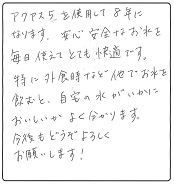 アクアス5を使用して8年に
なります。安心安全なお水を
毎日使えてとても快適です。
特に外食時など他でお水を
飲むと、自宅の水がいかに
おいしいかよく分かります。
今後もどうぞよろしく
お願いします!